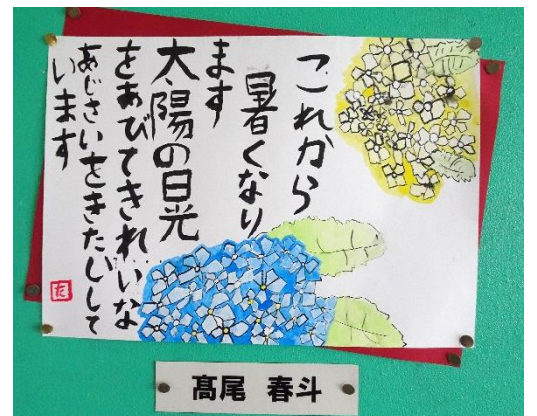 これから
暑くなり
ます
太陽の日光
をあびてきれいな
あじさいをきたいして
います
た
髙尾 春斗